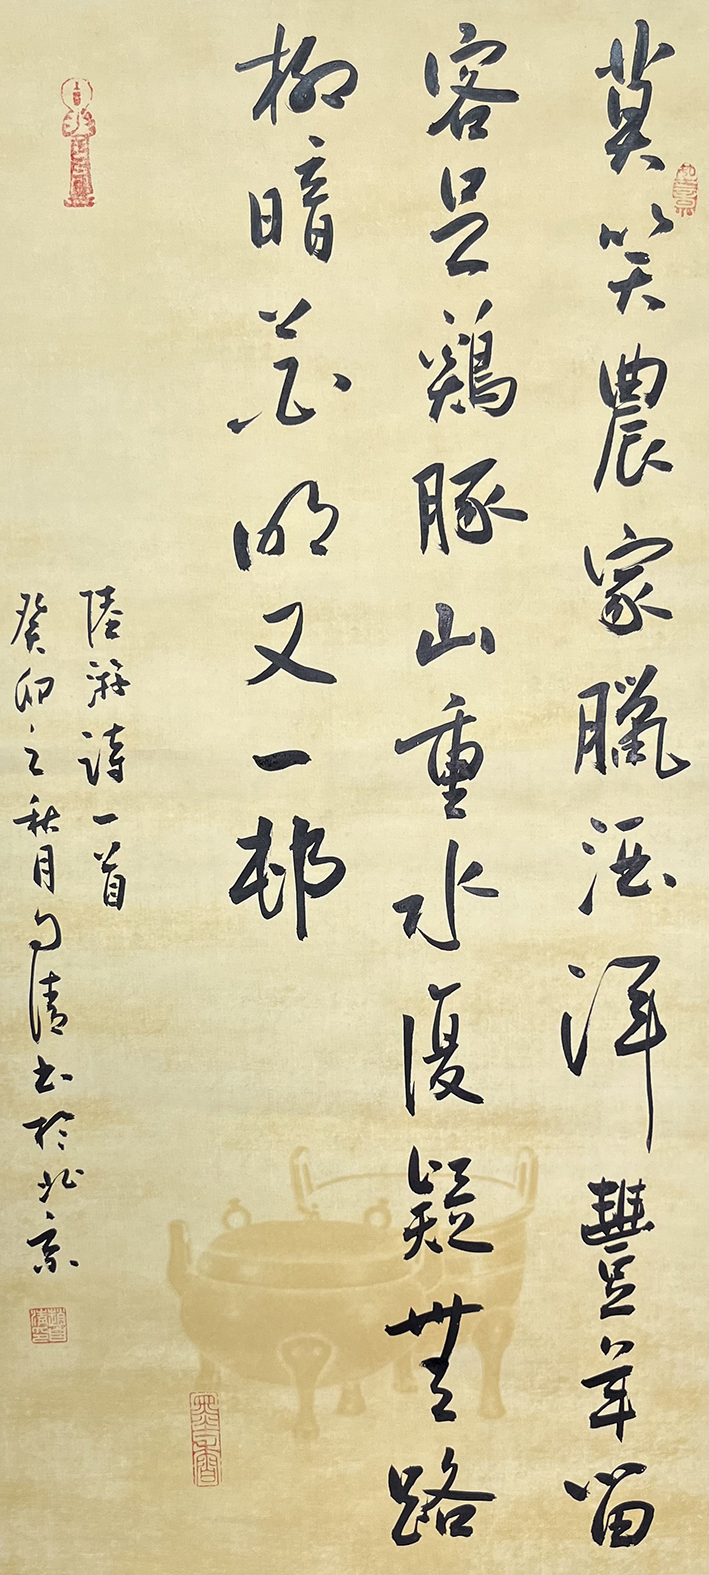 莫笑農家臘酒渾豐年留
客足鷄豚山重水復疑無路
柳暗花明又一邨
陸游詩一首
癸卯之秋月句清书於北京